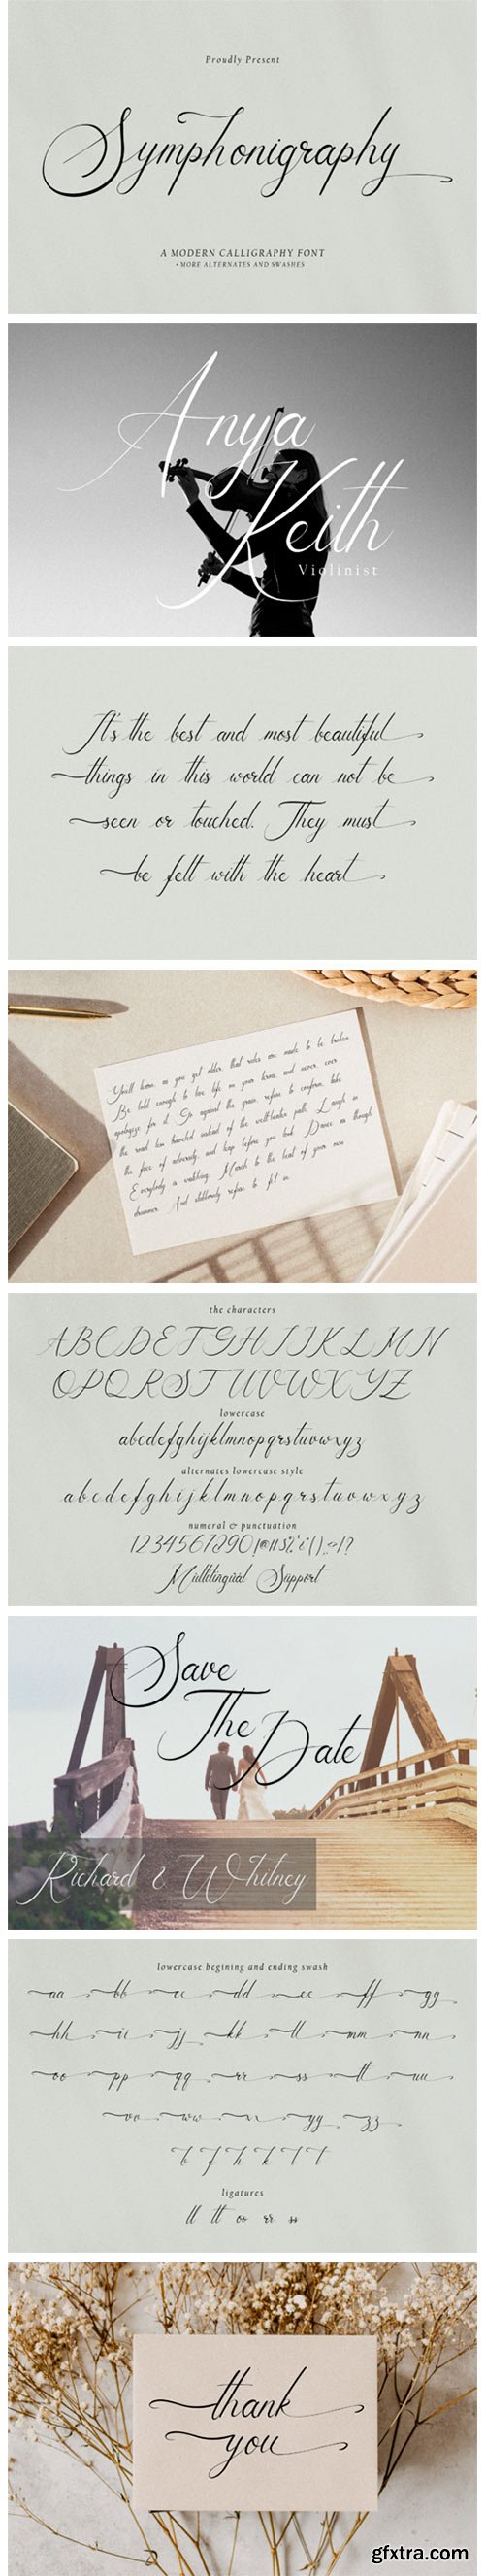 Proudly Present
Symphonigraphy
A MODERN CALLIGRAPHY FONT
+ MORE ALTERNATES AND SWASHES
Anya
Keith
Violinist
It's the best and most beautiful
things in this world can not be
seen or touched. They must
be felt with the heart
You'll learn, as you get older, that rules are made to be broken.
Be bold enough to live life on your terms, and never, ever
apologize for it. Go against the grain, refuse to conform, take
the road less traveled instead of the well-beaten path. Laugh in
the face of adversity, and leap before you look. Dance as though
Everybody is watching. March to the beat of your own
drummer. And stubbornly refuse to fit in.
the characters
ABCDEFGHIJKLMN
OPQRSTUVWXYZ
lowercase
abcdefghijklmnopqrstuvwxyz
alternates lowercase style
abcdefghijklmnopqrstuvwxyz
numeral & punctuation
1234567890
Multilingual Support
Save
The
Date
Richard & Whitney
lowercase begining and ending swash
aa bb cc dd ee ff gg
hh ii jj kk ll mm nn
oo pp qq rr ss tt uu
vv ww xx yy zz
ligatures
ll tt oo rr ss
thank
you
gfxtra.com